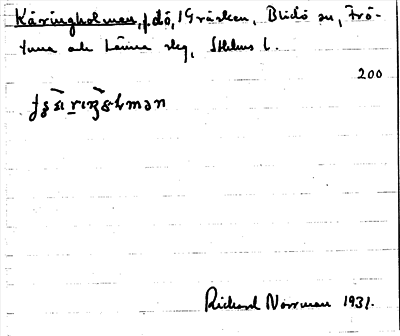 Käringholmen, f.dö, i Gräsken, Blidö sn, Frö-
tuna och Länna slg, Sthlms l.
200
Richard Norrman 1931.